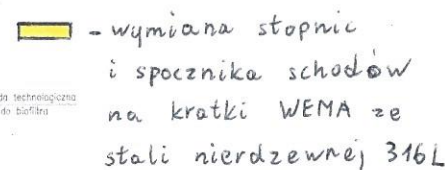 - wymiana stopnic
i spocznika schodów
na kratki WEMA ze
stali nierdzewnej 316L
da technologiczna
do biofiltra